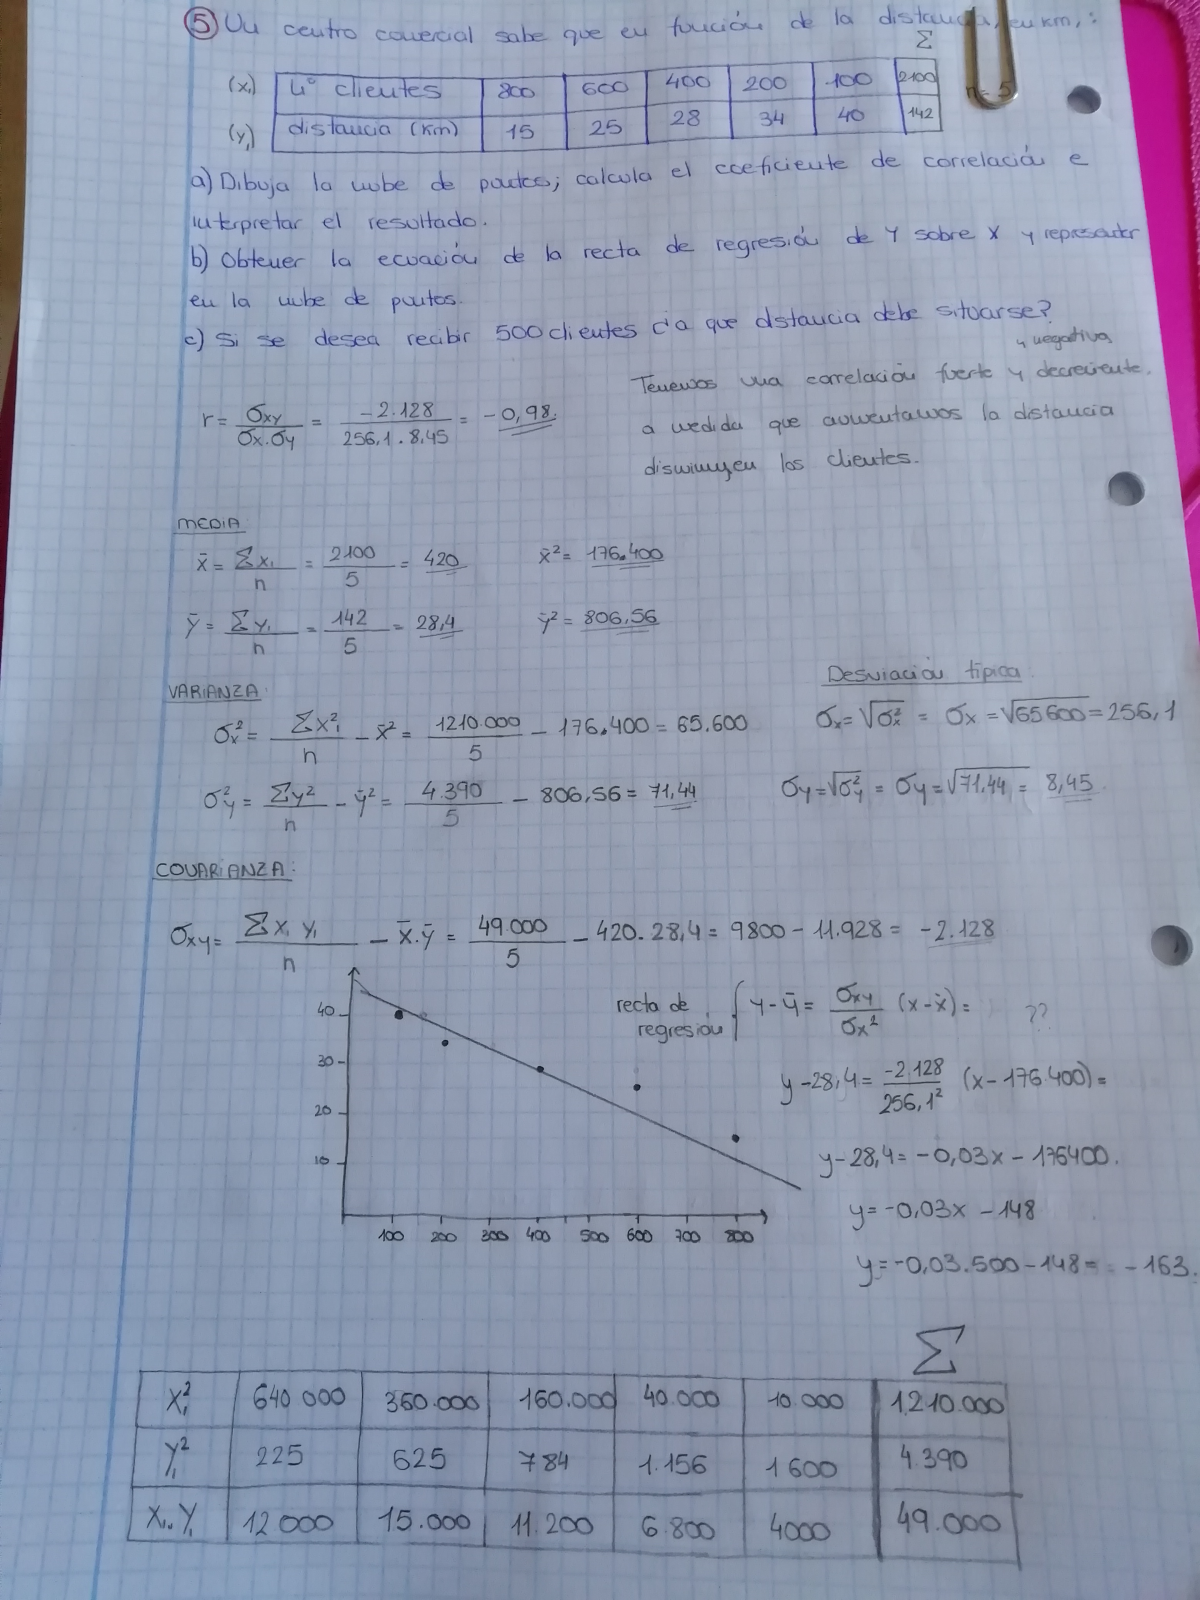 ⑤ Un centro comercial sabe que en función de la distancia, en km, :
Σ
(xᵢ) Nº clientes 800 600 400 200 100 2100 n = 5
(yᵢ) distancia (Km) 15 25 28 34 40 142
a) Dibuja la nube de puntos; calcula el coeficiente de correlación e
interpretar el resultado.
b) Obtener la ecuación de la recta de regresión de Y sobre X y representar
en la nube de puntos.
c) Si se desea recibir 500 clientes ¿a que distancia debe situarse?
y negativa
Tenemos una correlación fuerte y decreciente.
a medida que aumentamos la distancia
disminuyen los clientes.
r = σxy / σx · σy = -2.128 / 256,1 · 8,45 = -0,98.
MEDIA
x̄ = Σxᵢ / n = 2100 / 5 = 420 x̄² = 176.400
ȳ = Σyᵢ / n = 142 / 5 = 28,4 ȳ² = 806,56
VARIANZA: Desviación típica
σx² = Σxᵢ² / n - x̄² = 1210.000 / 5 - 176.400 = 65.600 σx = √σx² = σx = √65600 = 256,1
σy² = Σy² / n - ȳ² = 4.390 / 5 - 806,56 = 71,44 σy = √σy² = σy = √71,44 = 8,45
COVARIANZA:
σxy = Σxᵢ yᵢ / n - x̄·ȳ = 49.000 / 5 - 420 · 28,4 = 9800 - 11.928 = -2.128
40
30
20
10
100 200 300 400 500 600 700 800
recta de regresión { y - ȳ = σxy / σx² (x - x̄) = ??
y - 28,4 = -2.128 / 256,1² (x - 176.400) =
y - 28,4 = -0,03x - 176400.
y = -0,03x - 148
y = -0,03 . 500 - 148 = - 163.
Σ
xᵢ² 640 000 360.000 160.000 40.000 10.000 1.210.000
yᵢ² 225 625 784 1.156 1 600 4.390
xᵢ.yᵢ 12 000 15.000 11.200 6.800 4000 49.000